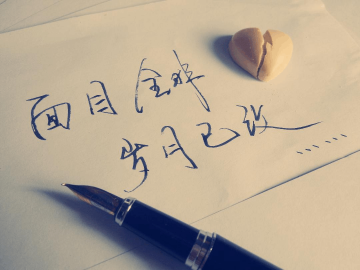 面目全非
岁月已没……